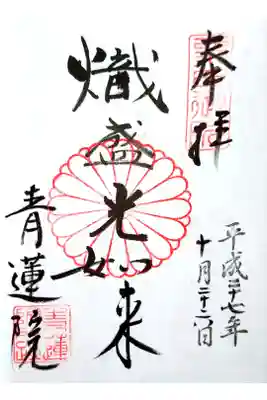 奉拝
平成二十七年
十月二十二日
熾盛光如来
青蓮院